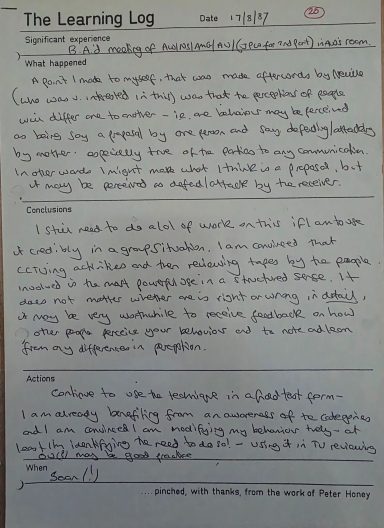 The Learning Log Date 17/8/87 (25)
Significant experience
B.A.'d meeting of AW/NS/AMG/AV/(JPC for 2nd part) in AW's room.
What happened
A point I made to myself, that was made afterwards by Neville
(who was v. interested in this) was that the perceptions of people
will differ one to another - i.e. one behaviour may be perceived
as being say a proposal by one person and say defending/attacking
by another. especially true of the parties to any communication.
In other words I might make what I think is a proposal, but
it may be perceived as defend/attack by the receiver.
Conclusions
I still need to do a lot of work on this if I am to use
it credibly in a group situation. I am convinced that
CCTVing activities and then reviewing tapes by the people
involved is the most powerful use in a structured sense. It
does not matter whether one is right or wrong in detail,
it may be very worthwhile to receive feedback on how
other people perceive your behaviour and to note and learn
from any differences in perception.
Actions
Continue to use the technique in a field test form -
I am already benefiting from an awareness of the categories
and I am convinced I am modifying my behaviour - at
least I'm identifying the need to do so! - using it in TV reviewing
may be good practice
When
Soon (!)
....pinched, with thanks, from the work of Peter Honey